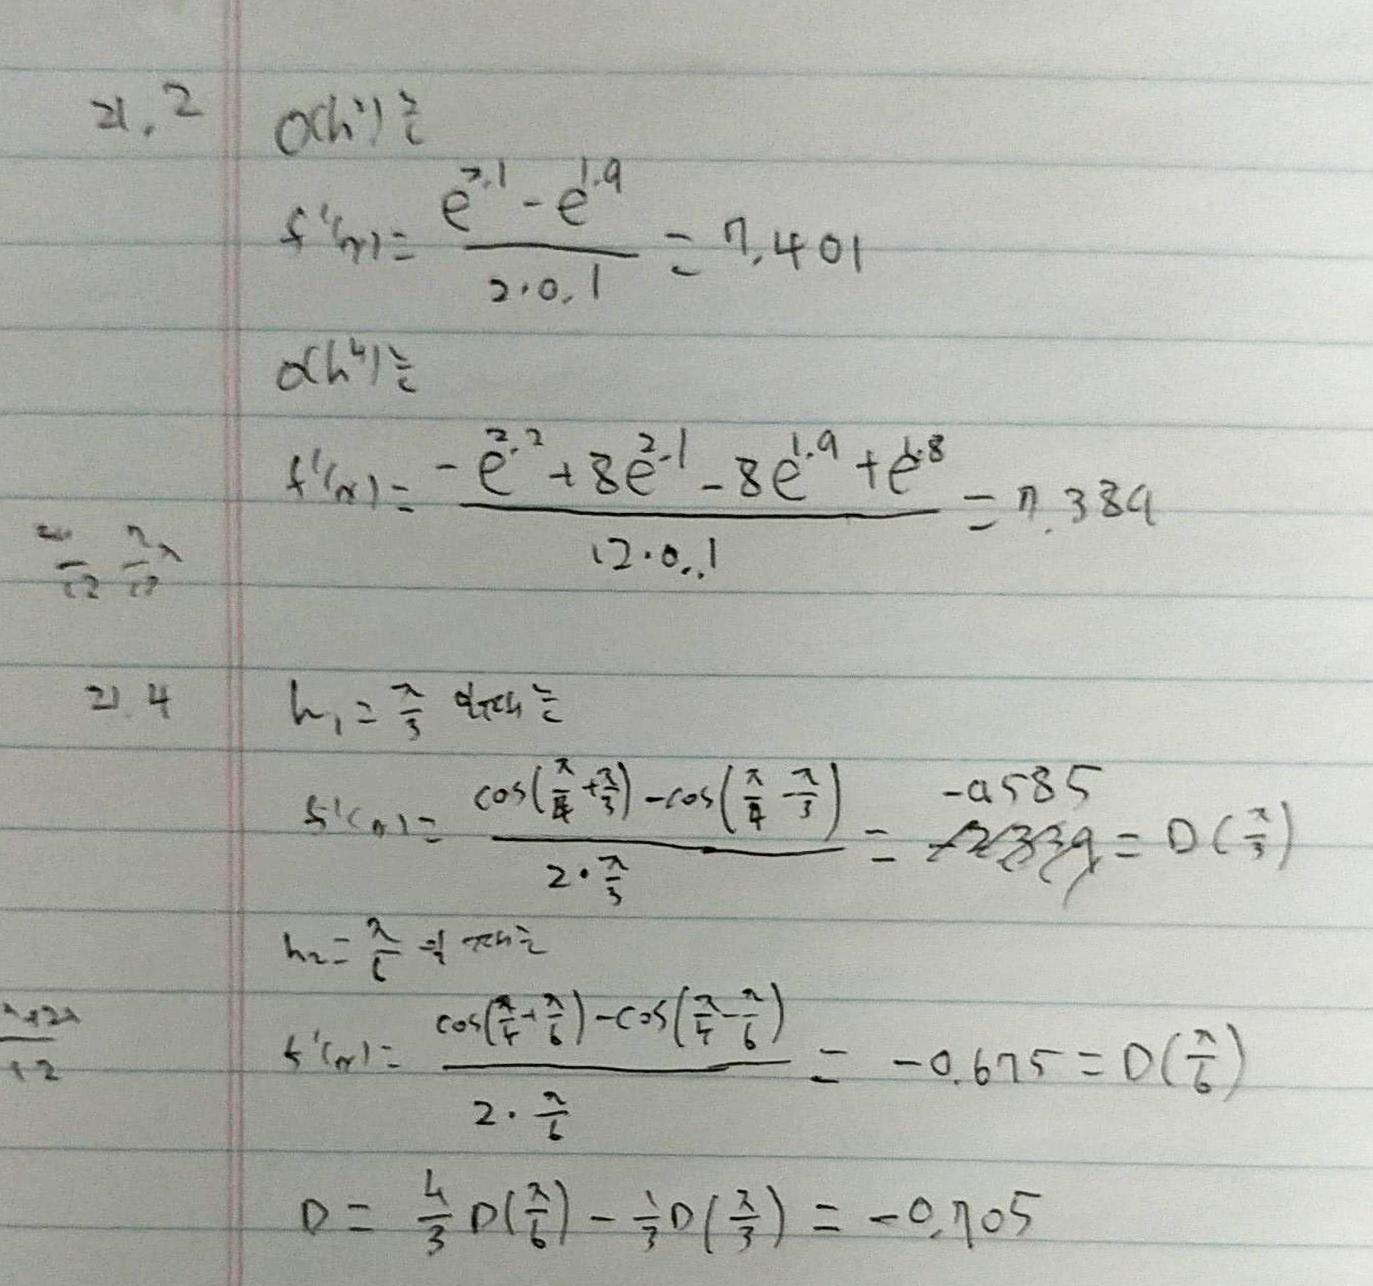 21.2 O(h²)는
f'(x) = (e^2.1 - e^1.9) / (2·0.1) = 7.401
O(h⁴)는
f'(x) = (-e^2.2 + 8e^2.1 - 8e^1.9 + e^1.8) / (12·0.1) = 7.389
21.4 h₁ = π/3 일때는
f'(x) = (cos(π/4 + π/3) - cos(π/4 - π/3)) / (2·π/3) = -0.585 = D(π/3)
h₂ = π/6 일 때는
f'(x) = (cos(π/4 + π/6) - cos(π/4 - π/6)) / (2·π/6) = -0.675 = D(π/6)
D = 4/3 D(π/6) - 1/3 D(π/3) = -0.705